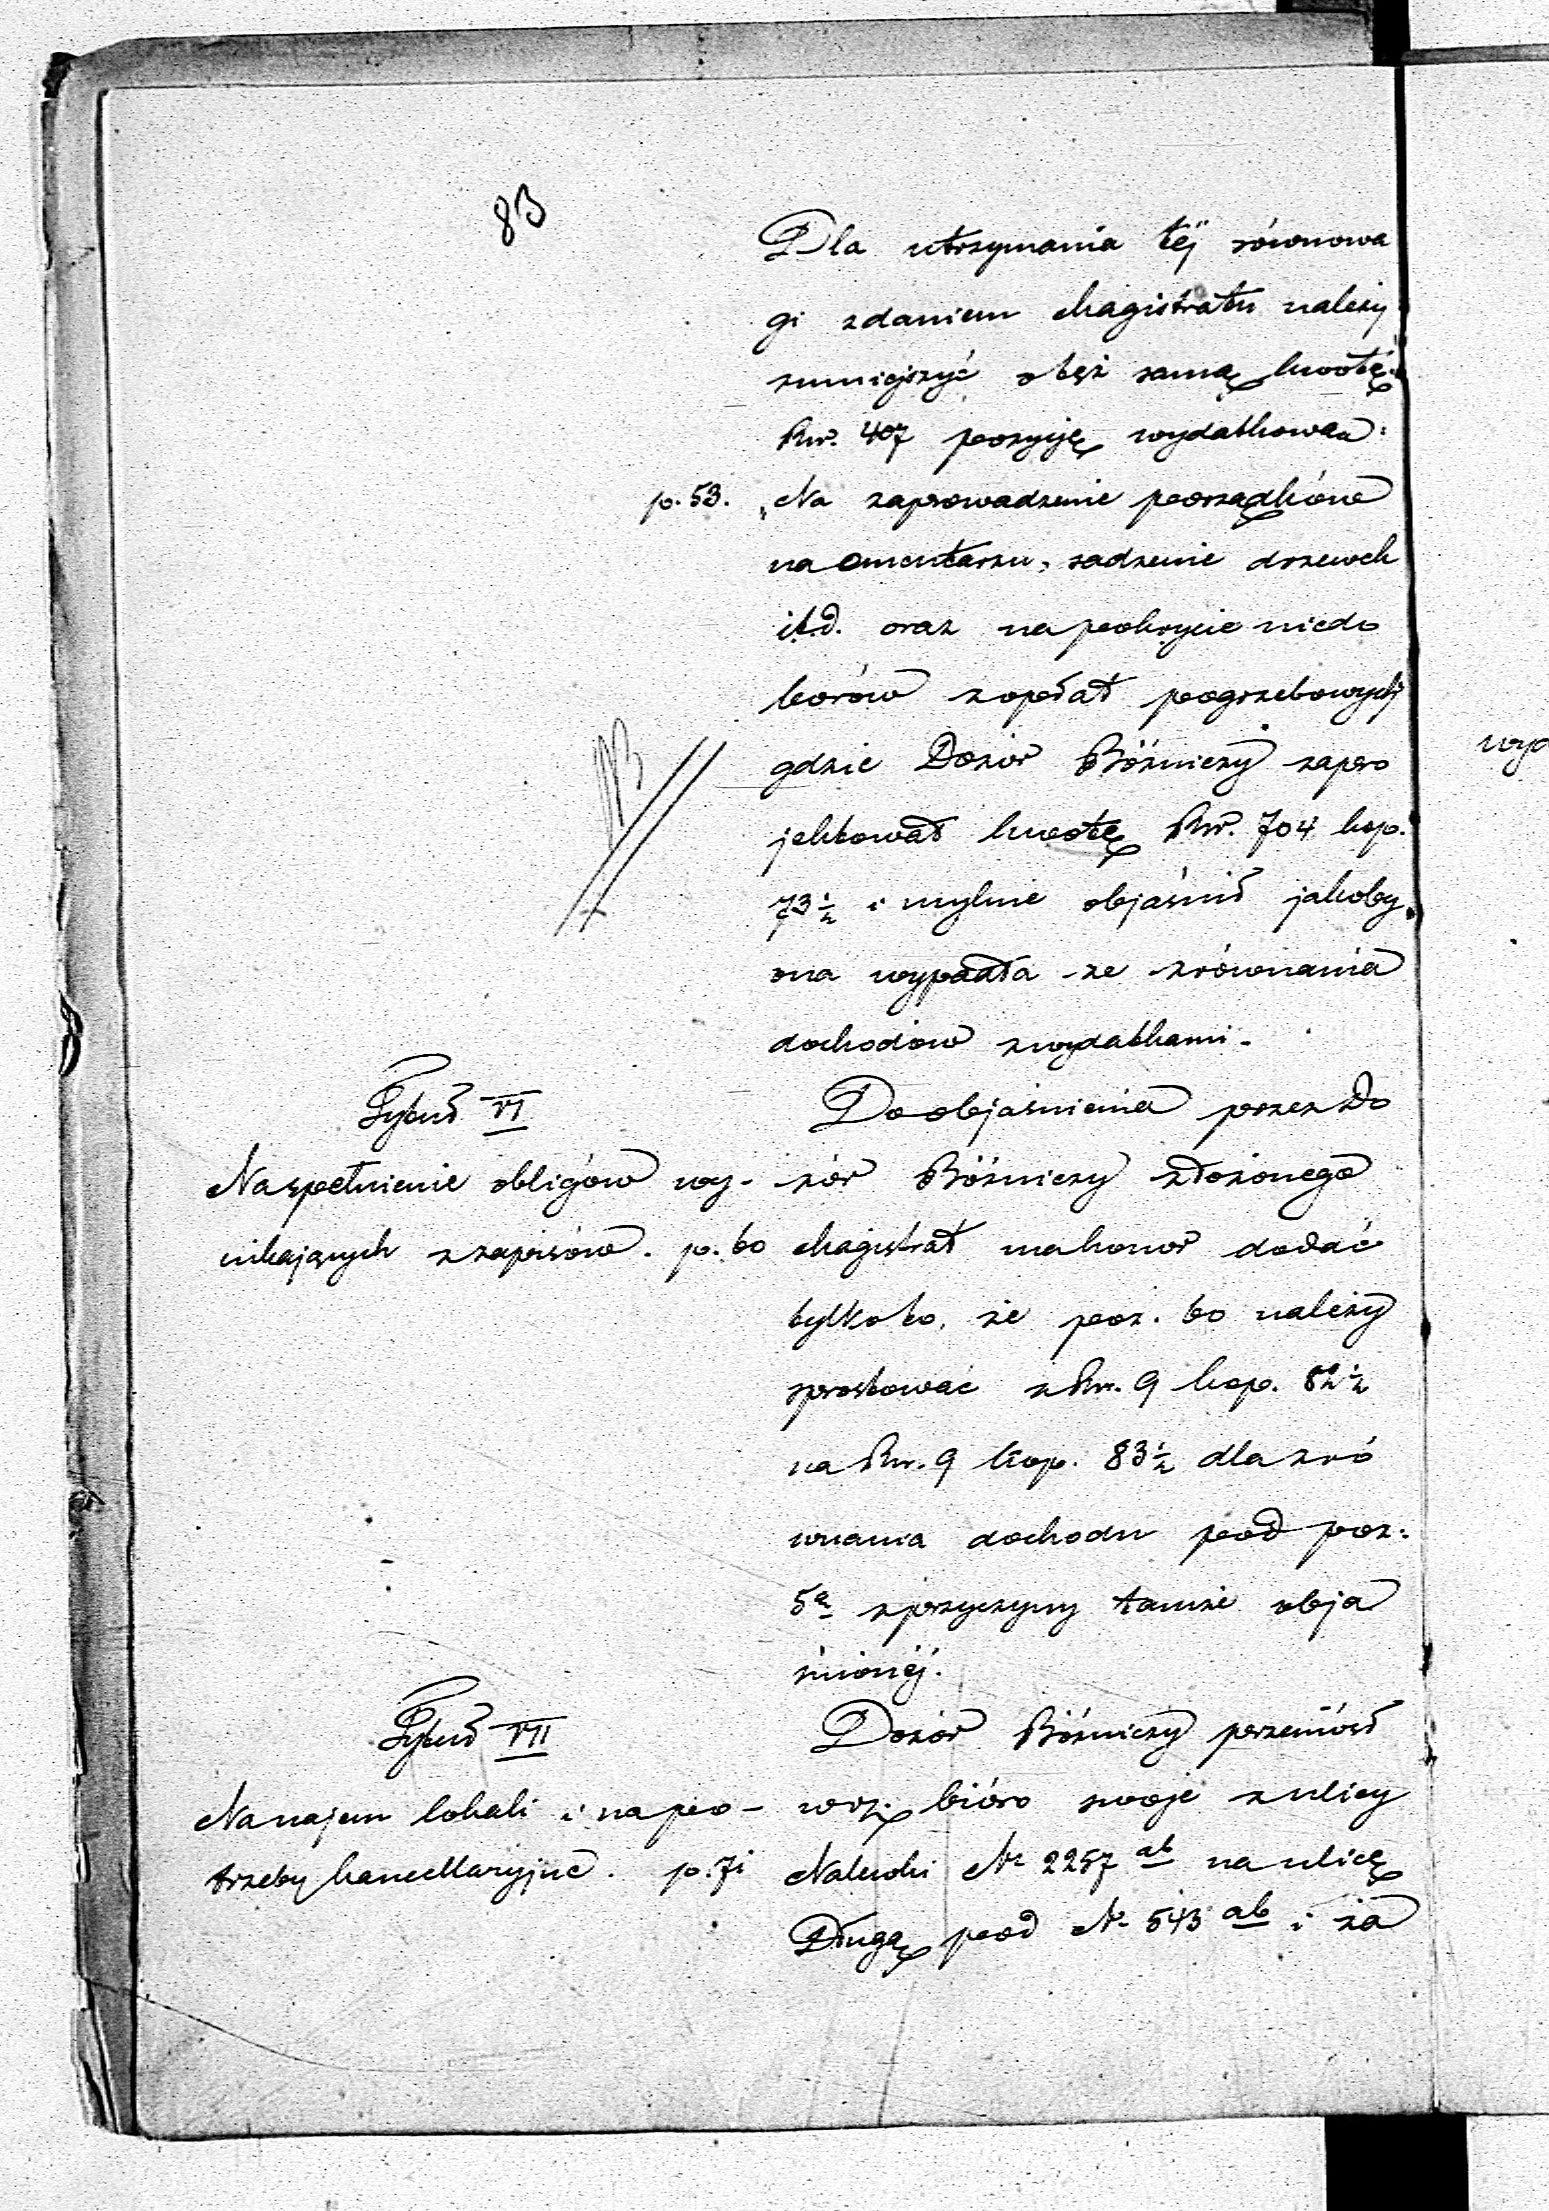 83
Dla utrzymania téj równowa
gi zdaniem Magistratu należy
zmniejszyć o też samą kwotę
Rsr. 407 pozycję wydatkowa:
p. 53. „Na zaprowadzenie porządków
na cmentarzu, sadzenie drzewek
i t.d. oraz na pokrycie niedo
borów z opłat pogrzebowych
gdzie Dozór Bóźniczy zapro
jektował kwotę Rsr. 704 kop.
73½ i mylnie objaśnił jakoby
ona wypadła ze zrównania
dochodów z wydatkami.
Tytuł VI
Na spełnienie obligów wy-
nikających z zapisów. p. 60
Do objaśnienia przez Do
zór Bóźniczy złożonego
Magistrat ma honor dodać
tylko to, że poz. 60 należy
sprostować z Rsr. 9 kop. 82½
na Rsr. 9 kop. 83½ dla zró
wnania dochodu pod poz:
5ą z przyczyny tamże obja
śnionéj.
Tytuł VII
Na najem lokali i na po-
trzeby kancellaryjne. p. 71
Dozór Bóźniczy przeniósł
wrz. bióro swoje z ulicy
Nalewki № 2257 ab na ulicę
Długą pod № 543 ab i za
wyd